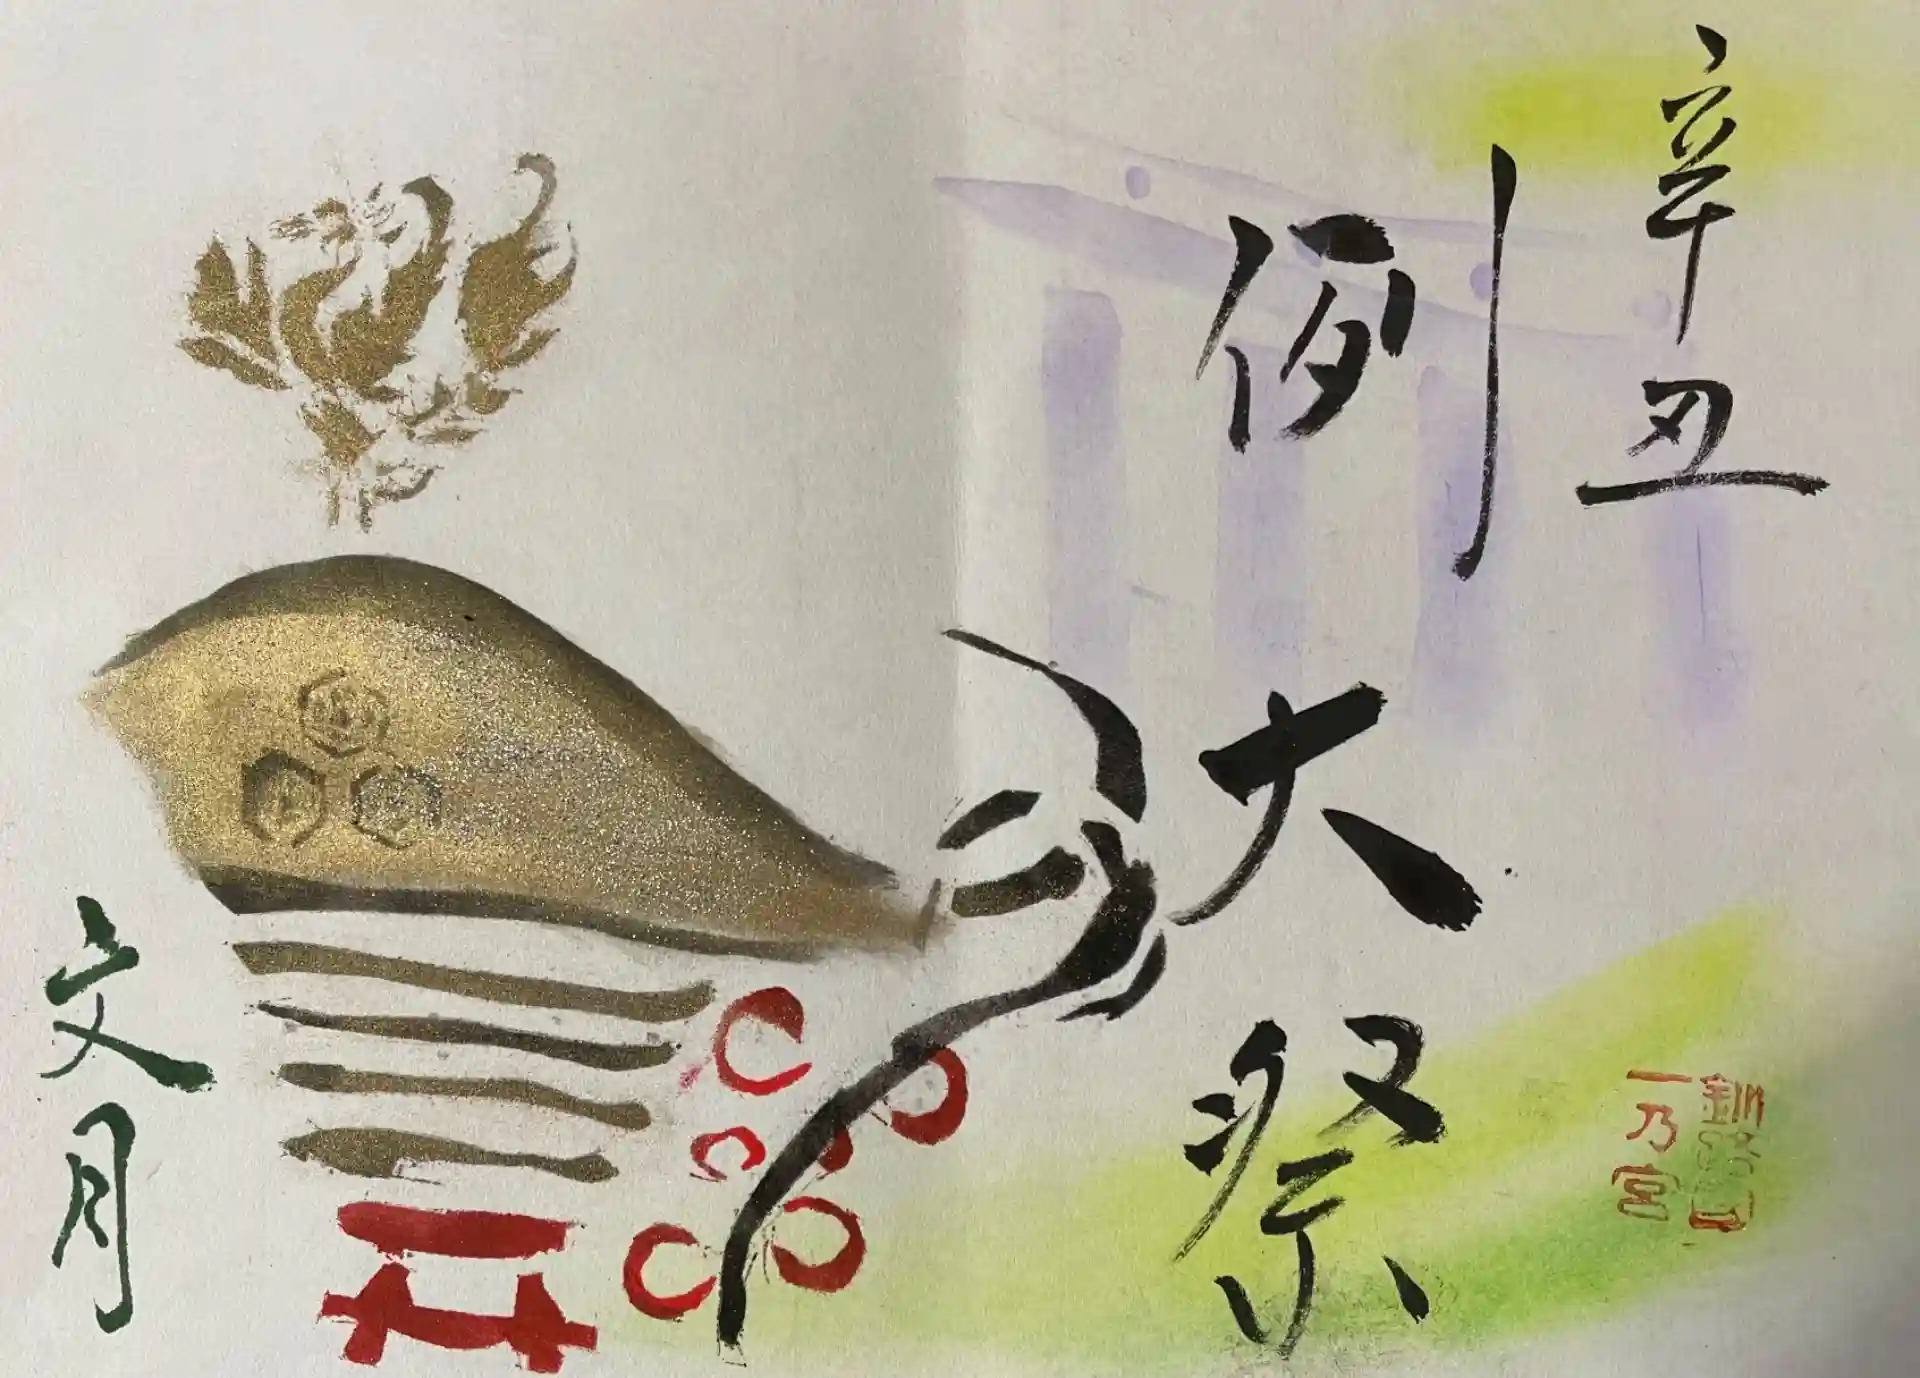 辛丑
例大祭
一乃宮
文月